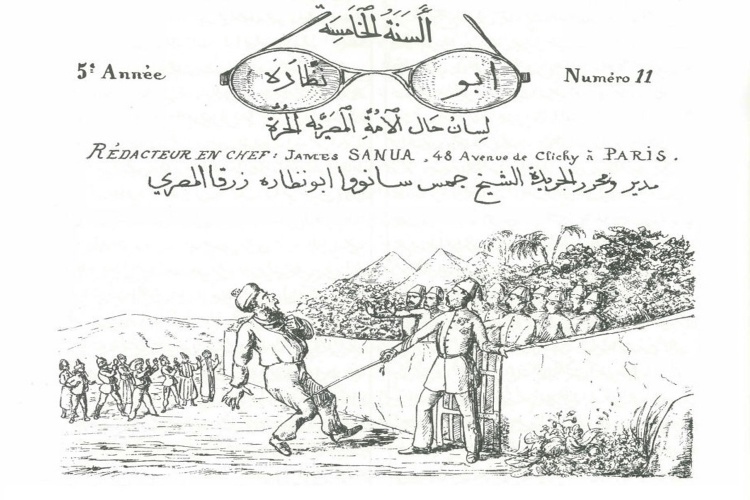 السَّنَةُ الخَامِسَة
5ᵉ Année
ابو نظاره
Numéro 11
لِسَان حَال الأُمَّةِ المصرِيَّه الحُرَّة
RÉDACTEUR EN CHEF: JAMES SANUA, 48 Avenue de Clichy à PARIS.
مدير ومحرر الجريدة الشيخ جمس سانووا ابو نظاره زرقا المصري